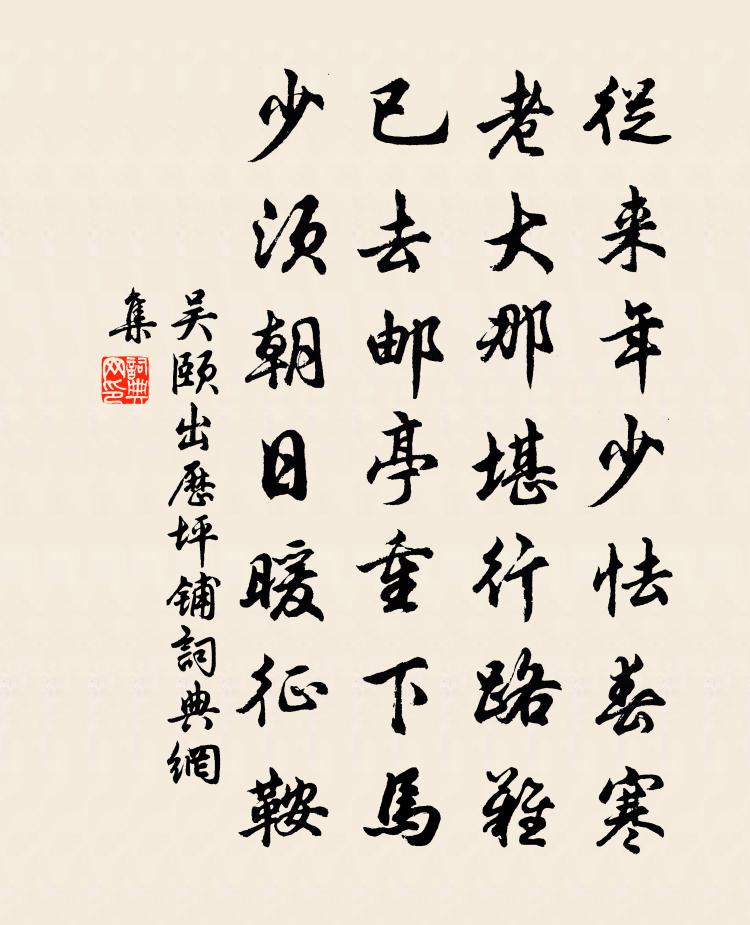 從来年少怯春寒
老大那堪行路難
已去邮亭重下馬
少須朝日暖征鞍
吴頤出歷坪铺詞典網
集
詞典網印